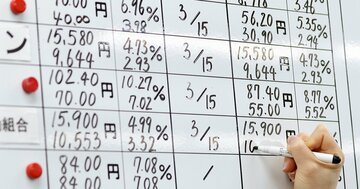 70.00 円 6.96% 3/15 56.20 円 5.35%
40.00 3.92 30.90 2.94
ン 15,580 円 4.73% 3/15 15,580 円 4.73%
9,644 2.93 9,644 2.93
102.40 円 10.27% 3/15 87.40 円 8.77%
70.00 7.02 55.00 5.52
組合 15,900 円 4.99% 3/15 15,900 円
10,553 3.32 10
84.00 円 7.08%
84.00 7.08